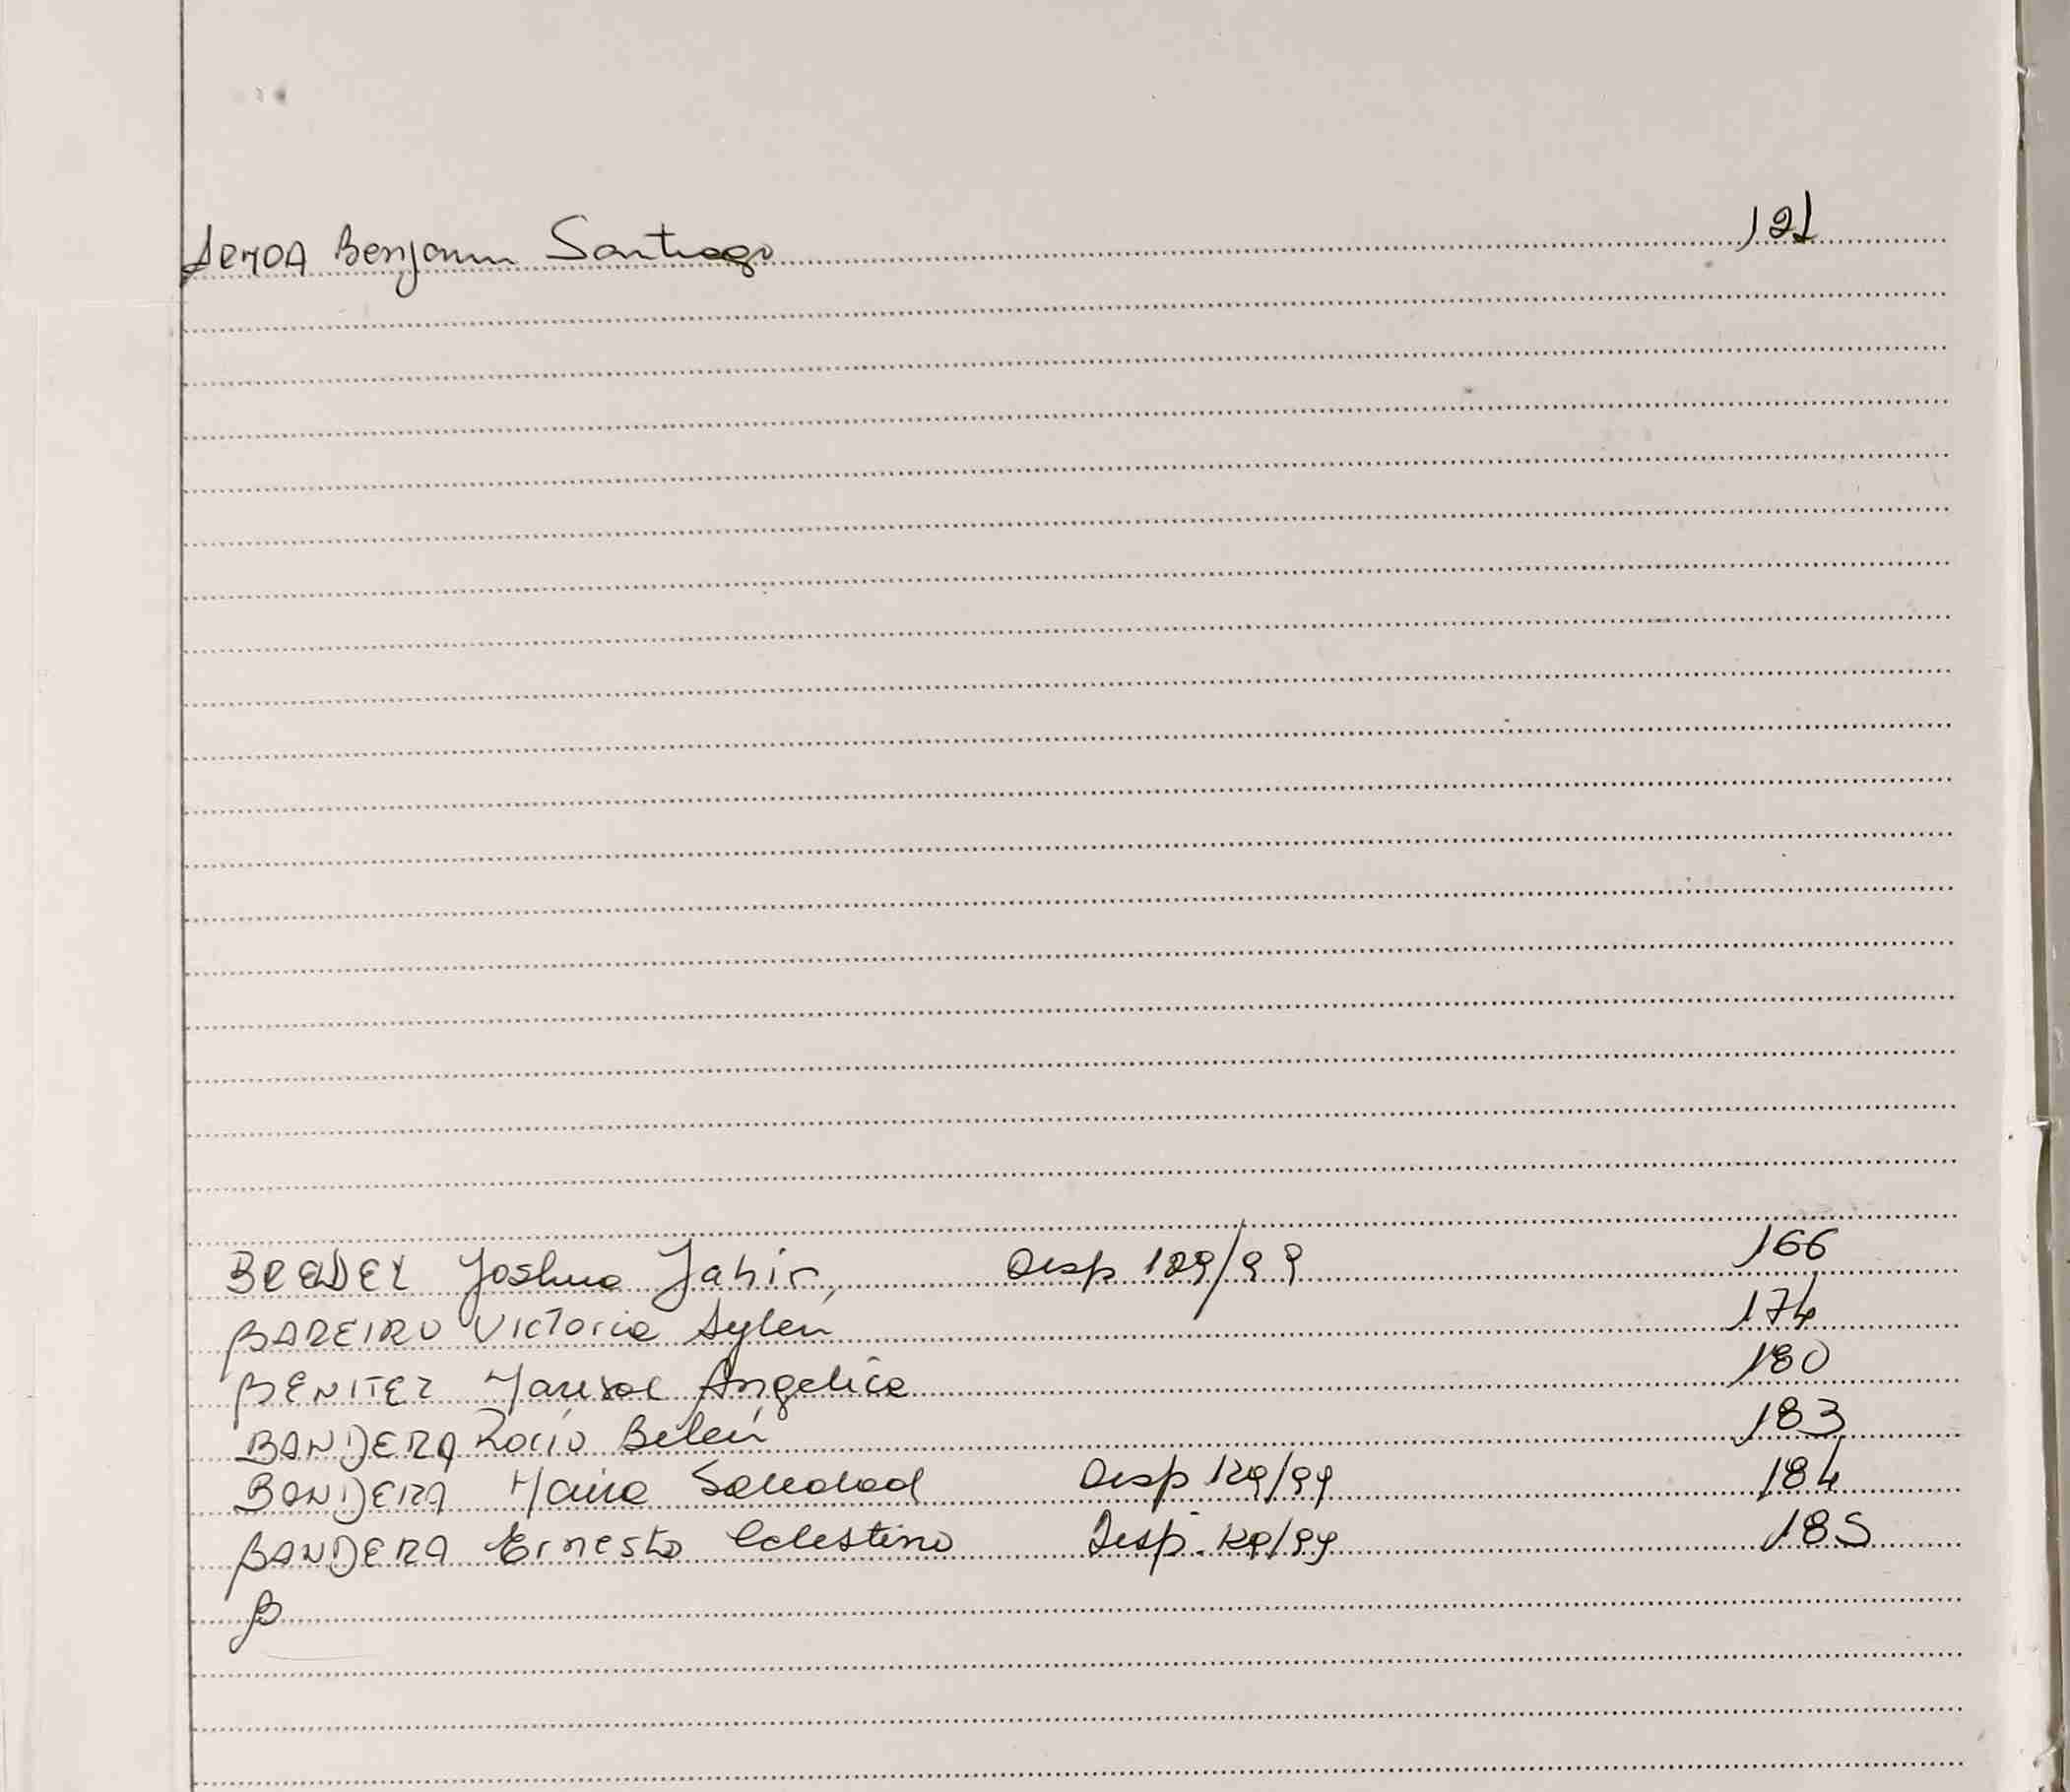 ARMOA Benjamin Santiago 121
BRENDEL Joshua Jahir Desp 129/99 166
BAREIRO Victoria Aylén 174
BENITEZ Marisol Angelica 180
BANDERA Rocío Belén 183
BANDERA Maira Soledad Desp 129/99 184
BANDERA Ernesto Celestino Desp. 129/99 185
B